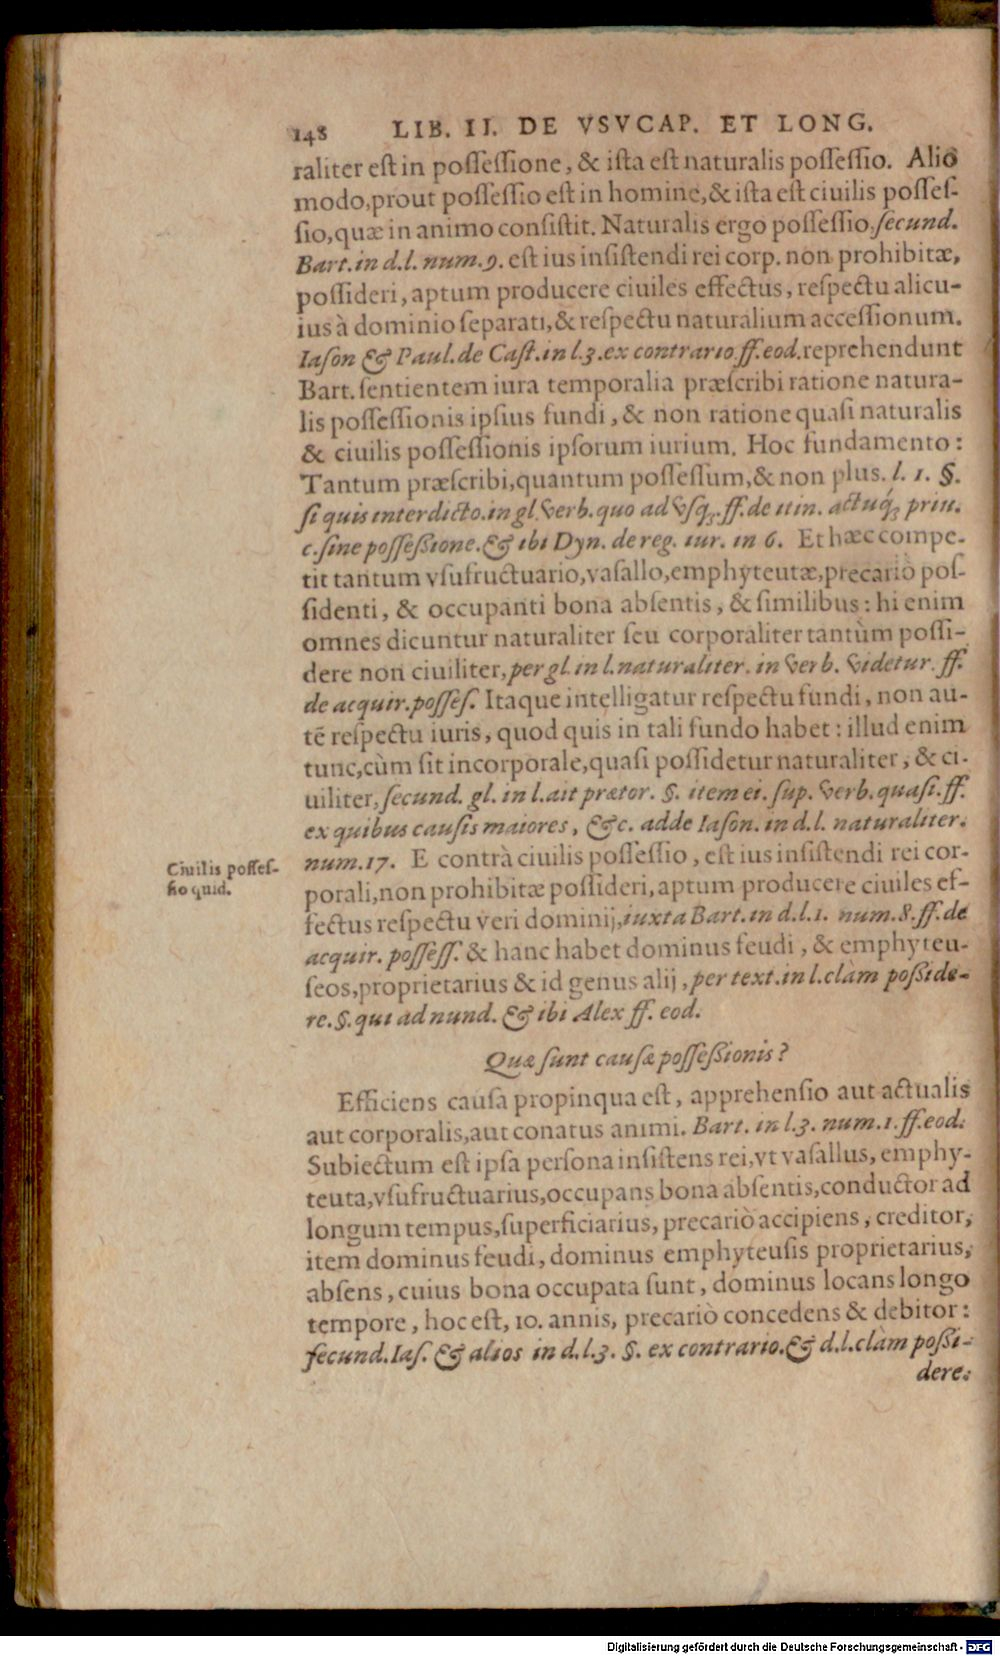 148 LIB. II. DE VSVCAP. ET LONG.
raliter est in possessione, & ista est naturalis possessio. Alio
modo, prout possessio est in homine, & ista est ciuilis posses-
sio, quæ in animo consistit. Naturalis ergo possessio, secund.
Bart. in d. l. num. 9. est ius insistendi rei corp. non prohibitæ,
possideri, aptum producere ciuiles effectus, respectu alicu-
ius à dominio separati, & respectu naturalium accessionum.
Iason & Paul. de Cast. in l. 3. ex contrario. ff. eod. reprehendunt
Bart. sentientem iura temporalia præscribi ratione natura-
lis possessionis ipsius fundi, & non ratione quasi naturalis
& ciuilis possessionis ipsorum iurium. Hoc fundamento:
Tantum præscribi, quantum possessum, & non plus. l. 1. §.
si quis interdicto. in gl. verb. quo ad vsq́;. ff. de itin. actuq́; priu.
c. sine possessione. & ibi Dyn. de reg. iur. in 6. Et hæc compe-
tit tantum vsufructuario, vasallo, emphyteutæ, precariò pos-
sidenti, & occupanti bona absentis, & similibus: hi enim
omnes dicuntur naturaliter seu corporaliter tantùm possi-
dere non ciuiliter, per gl. in l. naturaliter. in verb. videtur. ff.
de acquir. posses. Itaque intelligatur respectu fundi, non au-
tē respectu iuris, quod quis in tali fundo habet: illud enim
tunc, cùm sit incorporale, quasi possidetur naturaliter, & ci-
uiliter, secund. gl. in l. ait prætor. §. item ei. sup. verb. quasi. ff.
ex quibus causis maiores, &c. adde Iason. in d. l. naturaliter.
num. 17. E contrà ciuilis possessio, est ius insistendi rei cor-
Ciuilis posses-
sio quid.
porali, non prohibitæ possideri, aptum producere ciuiles ef-
fectus respectu veri dominij, iuxta Bart. in d. l. 1. num. 8. ff. de
acquir. possess. & hanc habet dominus feudi, & emphyteu-
seos, proprietarius & id genus alij, per text. in l. clàm posside-
re. §. qui ad nund. & ibi Alex ff. eod.
Quæ sunt causæ possessionis?
Efficiens causa propinqua est, apprehensio aut actualis
aut corporalis, aut conatus animi. Bart. in l. 3. num. 1. ff. eod.
Subiectum est ipsa persona insistens rei, vt vasallus, emphy-
teuta, vsufructuarius, occupans bona absentis, conductor ad
longum tempus, superficiarius, precariò accipiens, creditor,
item dominus feudi, dominus emphyteusis proprietarius,
absens, cuius bona occupata sunt, dominus locans longo
tempore, hoc est, 10. annis, precariò concedens & debitor:
secund. Ias. & alios in d. l. 3. §. ex contrario. & d. l. clam possi-
dere.
Digitalisierung gefördert durch die Deutsche Forschungsgemeinschaft - DFG